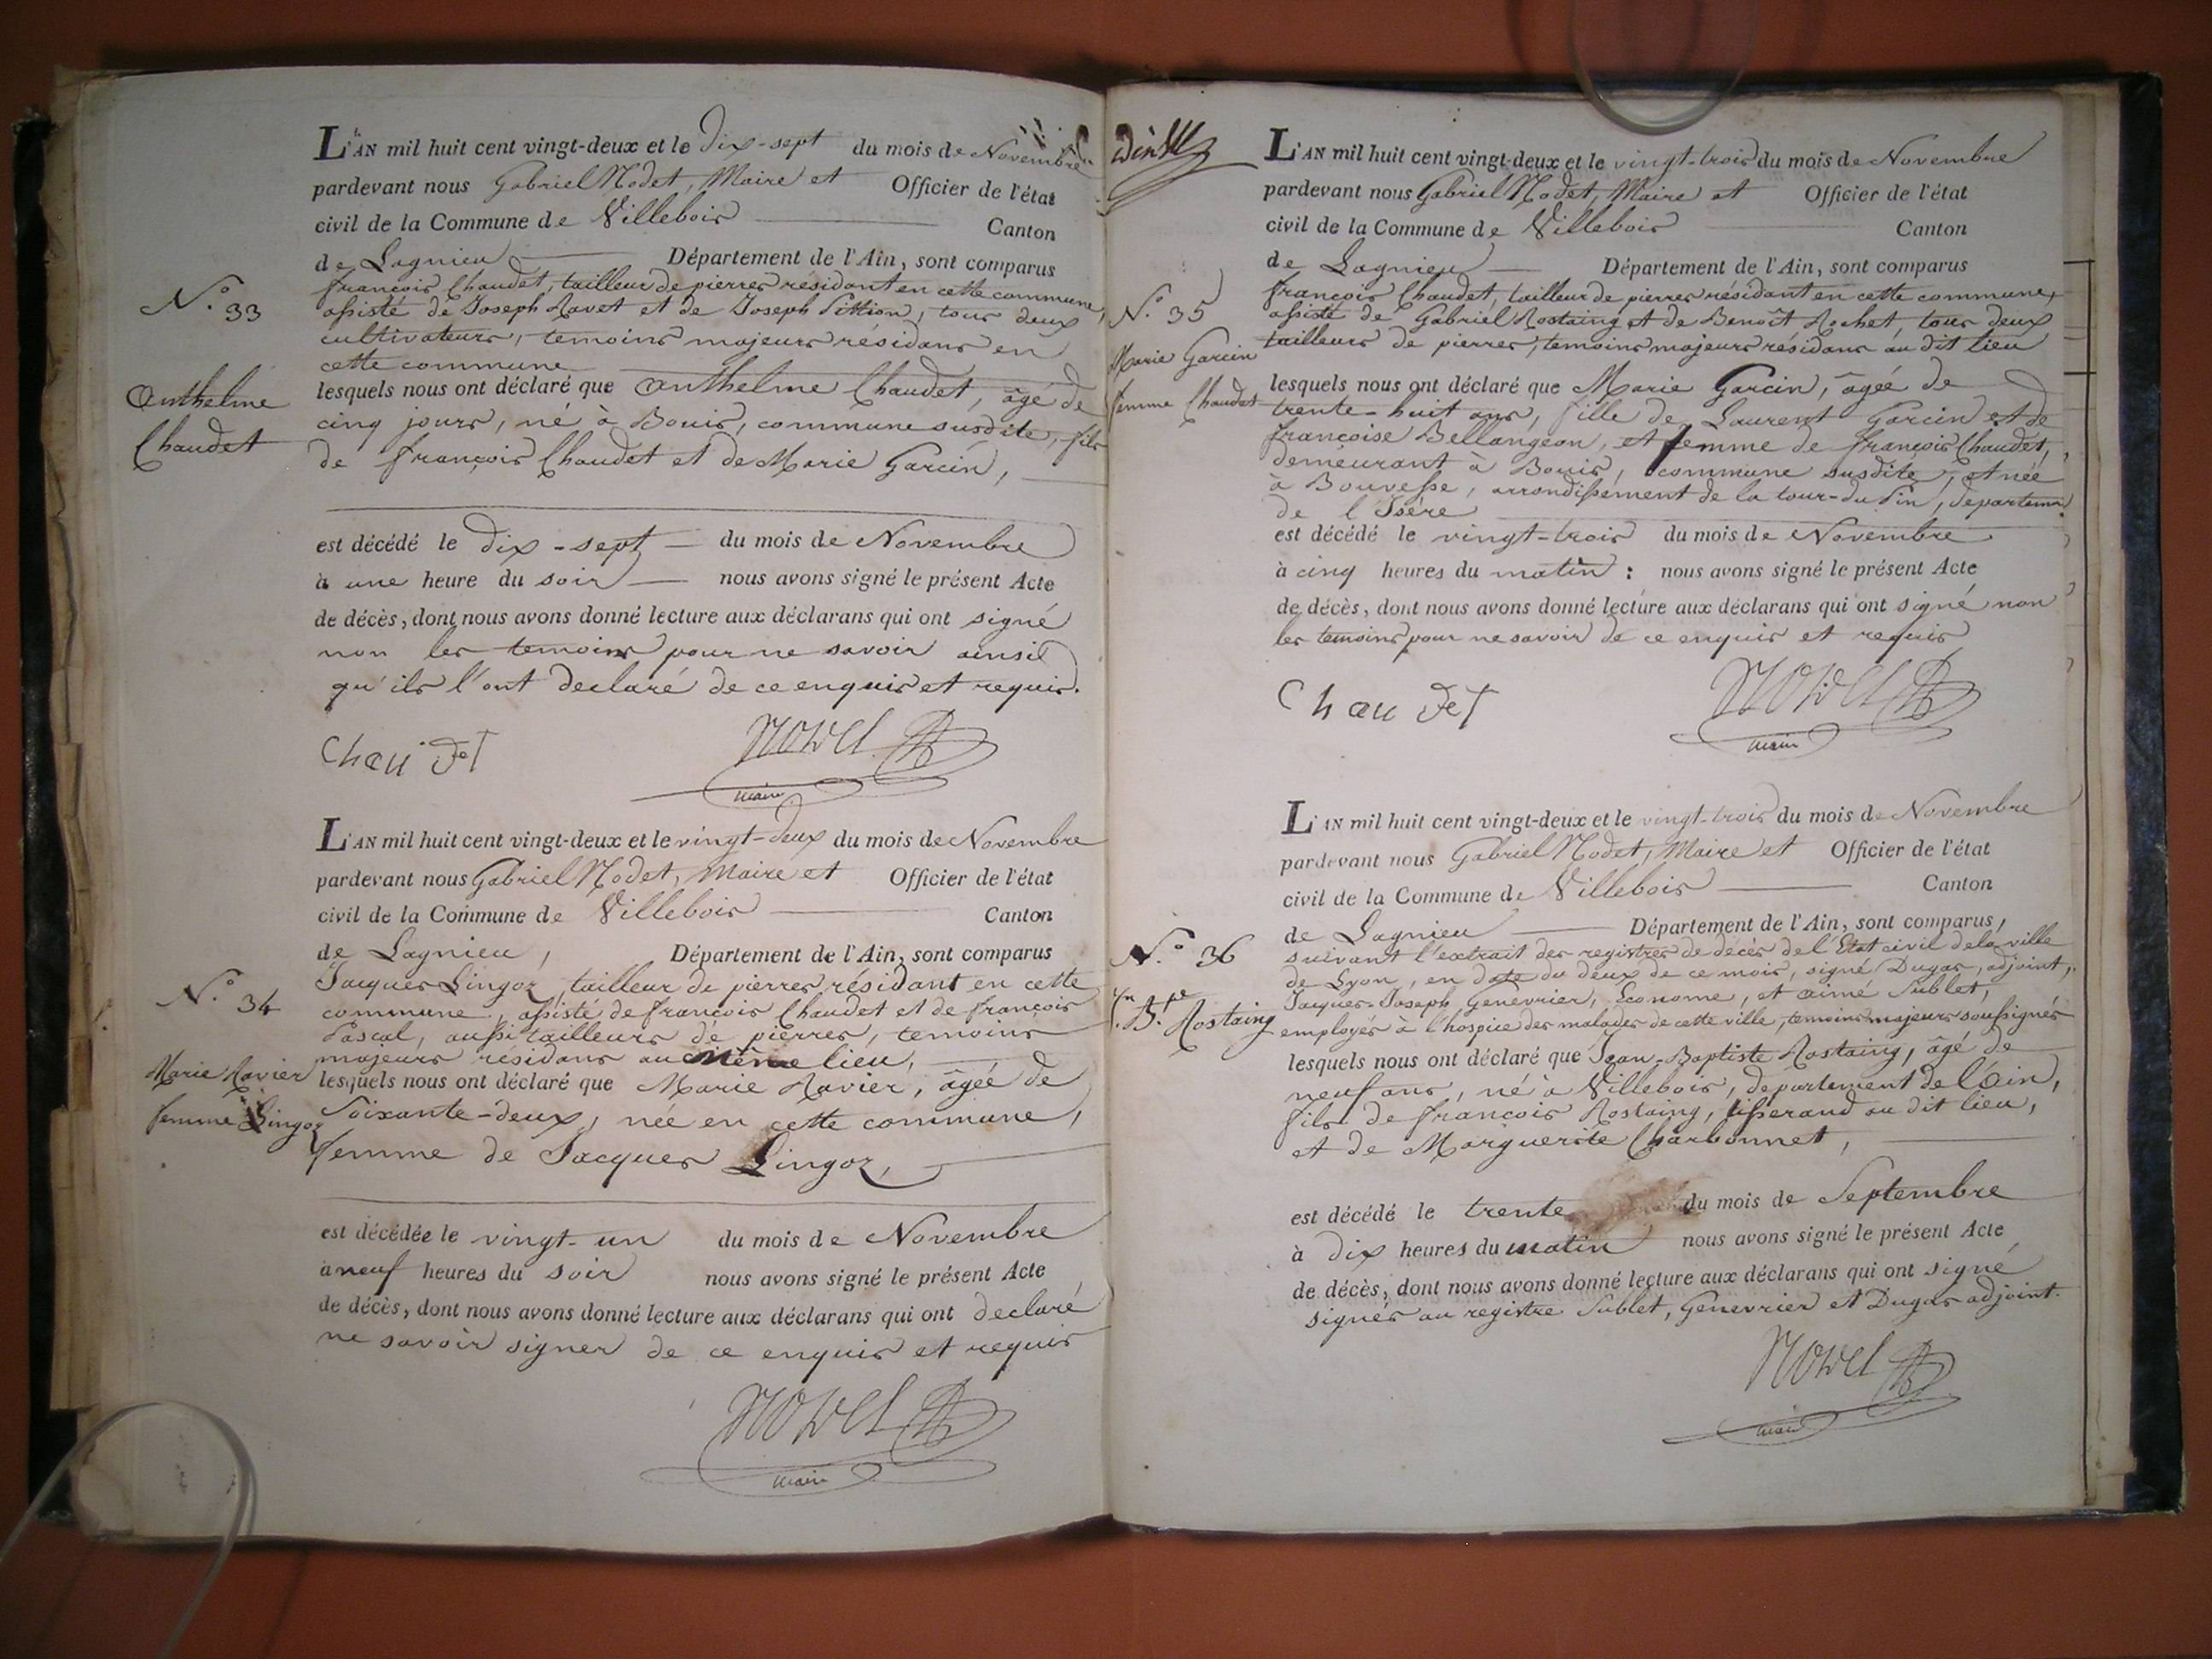 L'AN mil huit cent vingt-deux et le dix-sept du mois de Novembre
pardevant nous Gabriel Nodet, Maire et Officier de l'état
civil de la Commune de Villebois Canton
de Lagnieu Département de l'Ain, sont comparus
N.º 33
françois Chaudet, tailleur de pierres résidant en cette commune,
assisté de Joseph Ravet et de Joseph Pittion, tous deux
cultivateurs, temoins majeurs résidans en
cette commune
Anthelme
Chaudet
lesquels nous ont déclaré que Anthelme Chaudet, âgé de
cinq jours, né à Bouis, commune susdite, fils
de françois Chaudet et de Marie Garcin,
est décédé le dix-sept du mois de Novembre
à une heure du soir nous avons signé le présent Acte
de décès, dont nous avons donné lecture aux déclarans qui ont signé
non les temoins pour ne savoir ainsi
qu'ils l'ont declaré de ce enquis et requis.
Chaudet
Nodet
maire
L'AN mil huit cent vingt-deux et le vingt-deux du mois de Novembre
pardevant nous Gabriel Nodet, Maire et Officier de l'état
civil de la Commune de Villebois Canton
de Lagnieu, Département de l'Ain, sont comparus
N.º 34
Jacques Lingoz, tailleur de pierres résidant en cette
commune, assisté de françois Chaudet et de françois
Pascal, aussi tailleurs de pierres, temoins
majeurs résidans au même lieu,
Marie Ravier
femme Lingoz
lesquels nous ont déclaré que Marie Ravier, âgée de
soixante-deux, née en cette commune,
femme de Jacques Lingoz,
est décédée le vingt-un du mois de Novembre
à neuf heures du soir nous avons signé le présent Acte
de décès, dont nous avons donné lecture aux déclarans qui ont declaré
ne savoir signer de ce enquis et requis
Nodet
maire
L'AN mil huit cent vingt-deux et le vingt-trois du mois de Novembre
pardevant nous Gabriel Nodet, Maire et Officier de l'état
civil de la Commune de Villebois Canton
de Lagnieu Département de l'Ain, sont comparus
N.º 35
françois Chaudet, tailleur de pierres résidant en cette commune,
assisté de Gabriel Rostaing et de Benoît Rochet, tous deux
tailleurs de pierres, temoins majeurs résidans au dit lieu
Marie Garcin
femme Chaudet
lesquels nous ont déclaré que Marie Garcin, âgée de
trente-huit ans, fille de Laurent Garcin et de
françoise Bellangeon, et femme de françois Chaudet,
demeurant à Bouis, commune susdite, et née
à Bouvesse, arrondissement de la tour-du Pin, departemt
de l'Isère
est décédé le vingt-trois du mois de Novembre
à cinq heures du matin : nous avons signé le présent Acte
de décès, dont nous avons donné lecture aux déclarans qui ont signé non
les temoins pour ne savoir de ce enquis et requis
Chaudet
Nodet
maire
L'AN mil huit cent vingt-deux et le vingt-trois du mois de Novembre
pardevant nous Gabriel Nodet, Maire et Officier de l'état
civil de la Commune de Villebois Canton
de Lagnieu Département de l'Ain, sont comparus,
N.º 36
suivant l'extrait des registres de decès de l'Etat civil de la ville
de Lyon, en date du deux de ce mois, signé Dugas, adjoint,
Jacques-Joseph Genevrier, Econome, et aimé Sublet,
Jn. Bte. Rostaing
employés à l'hospice des malades de cette ville, temoins majeurs soussignés
lesquels nous ont déclaré que Jean-Baptiste Rostaing, âgé de
neuf ans, né à Villebois, departement de l'Ain,
fils de françois Rostaing, tisserand au dit lieu,
et de Marguerite Charbonnet,
est décédé le trente du mois de Septembre
à dix heures du matin nous avons signé le présent Acte
de décès, dont nous avons donné lecture aux déclarans qui ont signé
signés au registre Sublet, Genevrier et Dugas adjoint.
Nodet
maire